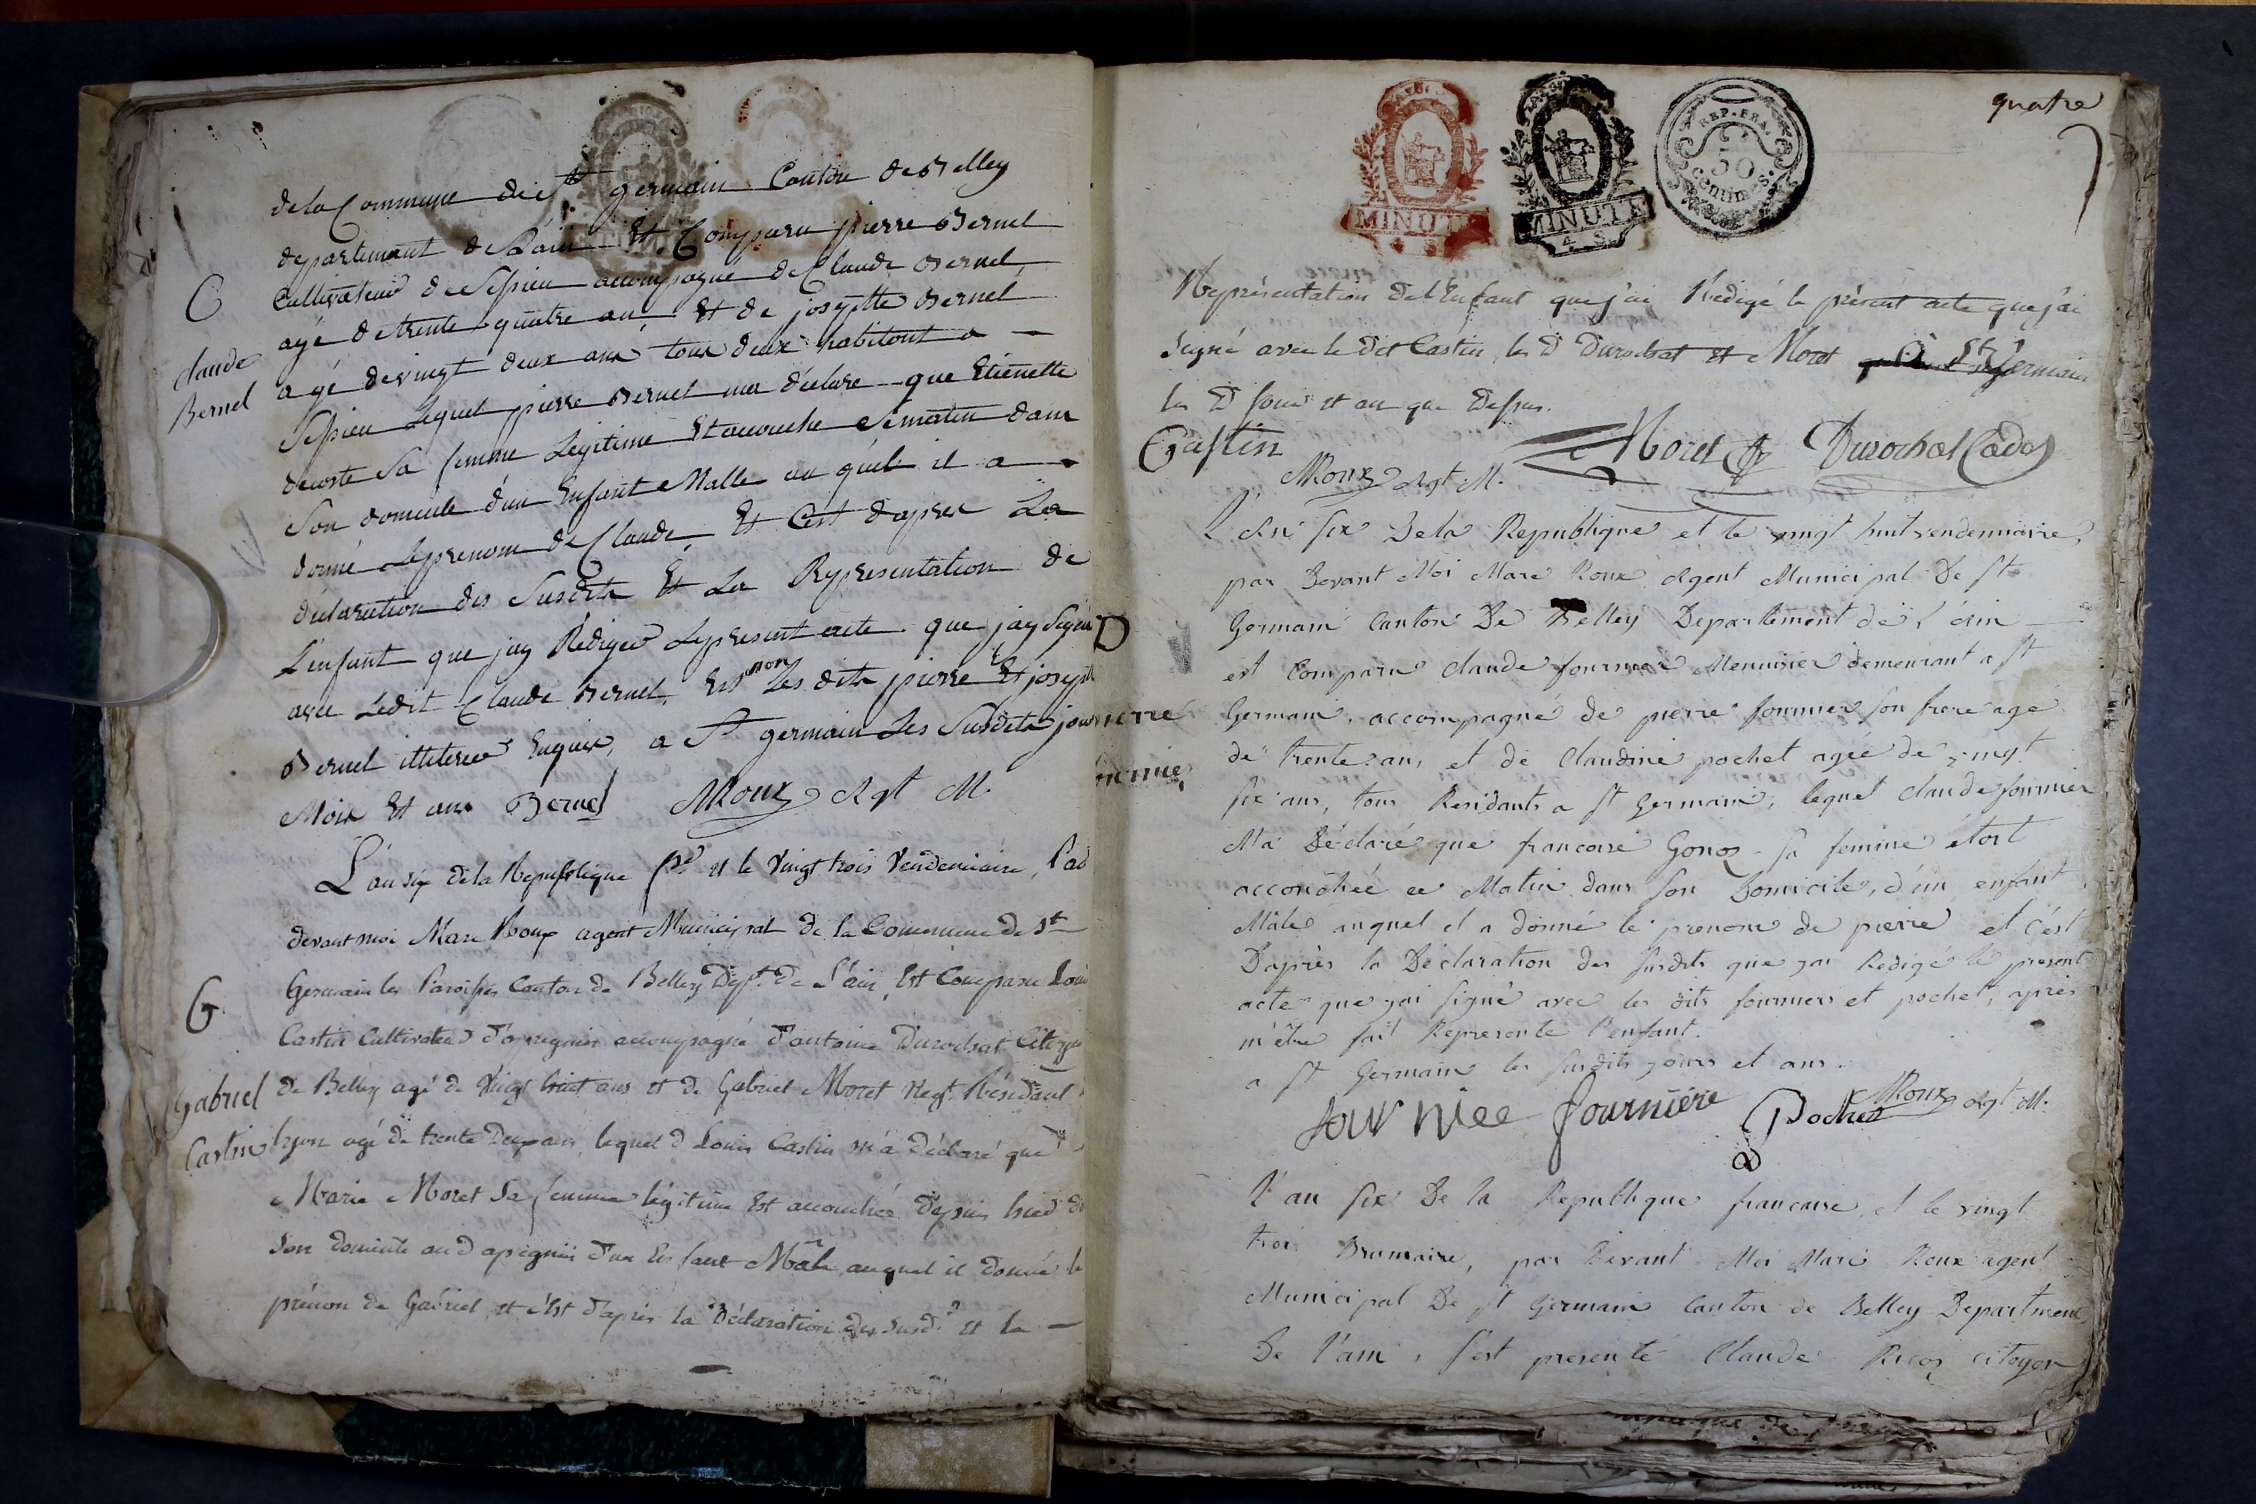 de la Commune de St germain Canton de Belley
departement de L'ain Est Comparu pierre Bernel
Cultivateur de Sespieu accompagné de Claude Bernel,
agé de trente quatre ans Et de josepte Bernel
agé de vingt deux ans tous deux habitant a
Sespieu Lequel pierre Bernel ma déclaré que Etienette
decoste Sa femme Legitime Et accouche Ce matin dans
Son domicile d'un Enfant Malle au quel il a
donné Le prenom de Claude, Et C'est d'apres La
déclaration des Susdits Et La Representation de
L'enfant que jay Rédiger Le present acte que jay Signé
avec Ledit Claude Bernel, Et non Les dits pierre Et josepte
Bernel illiteres Enquis, a St germain Les Susdits jour
Mois Et ans Bernel MRoux Agt M.
C
claude
Bernel
L'an six de la Republique fse et le Vingt trois Vendemiaire, Pad
devant moi Marc Roux agent Municipal de la Commune de St
Germain les Paroisses Canton de Belley Dept. de L'ain, Est Comparu Loui
Castin Cultivateur d'apregnin accompagné d'antoine Durochat Citoyen
de Belley agé de Vingt huit ans et de Gabriel Moret Negt. Résidant
lyon agé de trente Deux ans, lequel d Louis Castin m'a déclaré que
Marie Moret Sa femme légitime Est accouchée depuis hier d
Son domicile aud apregnin d'un Enfant Mâle auquel il donné le
prénom de Gabriel, et c'est d'après la Déclaration des susd. et la
G
Gabriel
Castin
quatre
MINUTE
4 S
MINUTE
4 S
REP. FRA.
50
centimes.
Représentation de l'Enfant que j'ai Redigé le présent acte que j'ai
Signé avec le dit Castin, les D Durochat et Moret à St Germain
les D jour et an que Dessus.
Castin
MRoux Agt M.
Moret
Durochat Cadet
D
pierre
fournier
L'An six De la Republique et le vingt huit vendemiaire,
par Devant Moi Marc Roux Agent Municipal De St
Germain Canton De Belley Departement de l'Ain
est Comparu claude fournier Menuisier demeurant a St
Germain, accompagné de pierre fournier son frere agé
de trente ans, et de Claudine pochet agée de vingt
six ans, tous Residants a St Germain, lequel claude fournier
M'a Déclaré que francoise Gonoz sa femme étoit
accouchée ce Matin dans son Domicile, d'un enfant
Mâle auquel il a donné le prenom de pierre et c'est
D'après la Déclaration des susdits que jai Redigé le present
acte que jai signé avec les dits fourniers et pochet, après
m'être fait Representé l'enfant.
a St Germain les susdits jours et ans.
MRoux Agt M.
four niee fournière Pochet
L'an six De la Republique francaise, et le vingt
trois Brumaire, par Devant Moi Marc Roux agent
Municipal De St Germain Canton de Belley Departement
De l'ain, s'est presenté Claude Ricoz citoyen